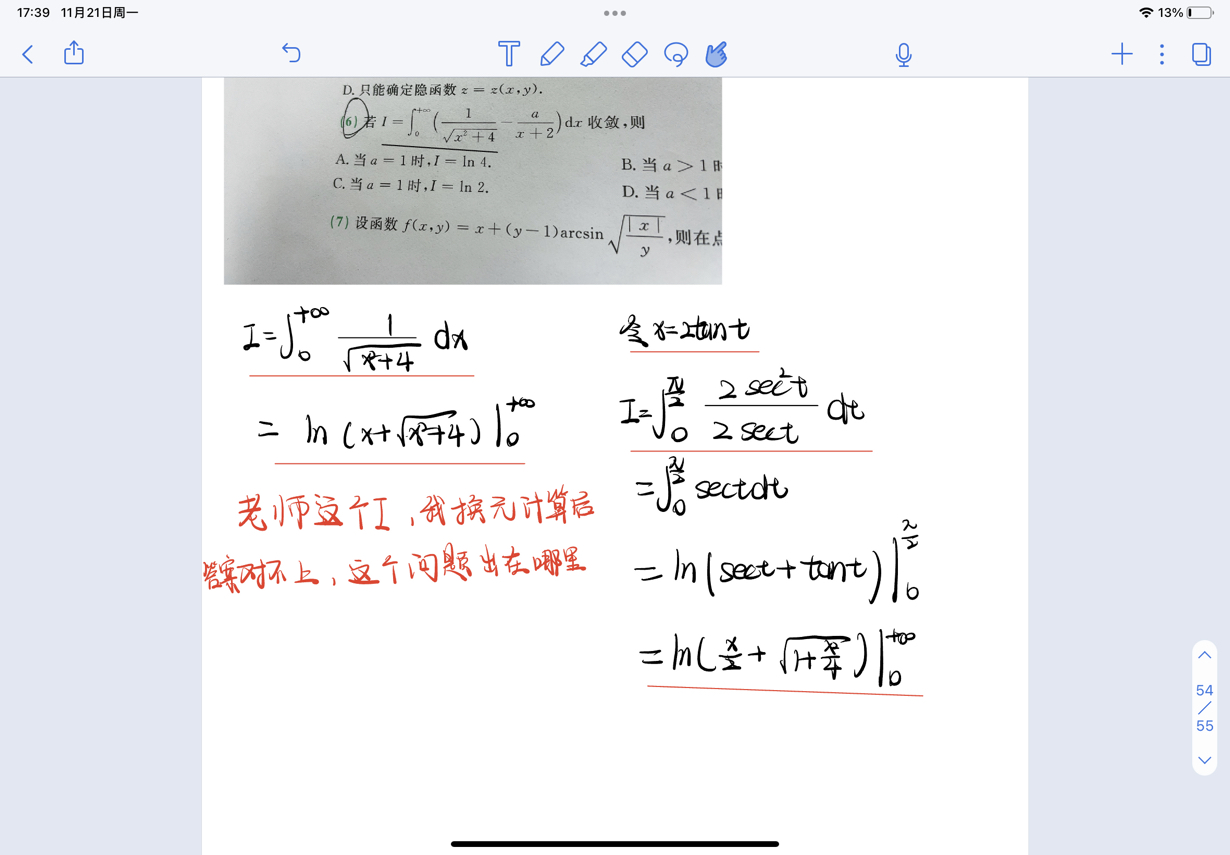 17:39 11月21日周一
13%
D. 只能确定隐函数 z = z(x,y).
(6) 若 I = ∫₀^{+∞} (1/√(x²+4) − a/(x+2)) dx 收敛,则
A. 当 a = 1 时, I = ln 4.
B. 当 a > 1 时
C. 当 a = 1 时, I = ln 2.
D. 当 a < 1 时
(7) 设函数 f(x,y) = x + (y − 1)arcsin √(|x|/y) ,则在点
I = ∫₀^{+∞} 1/√(x²+4) dx
= ln (x+√(x²+4)) |₀^{+∞}
老师这个I,我换元计算后
答案对不上,这个问题出在哪里
令 x=2tant
I = ∫₀^{π/2} 2sec²t / 2sect dt
= ∫₀^{π/2} sectdt
= ln(sect+tant) |₀^{π/2}
= ln(x/2 + √(1+x²/4)) |₀^{+∞}
54
/
55